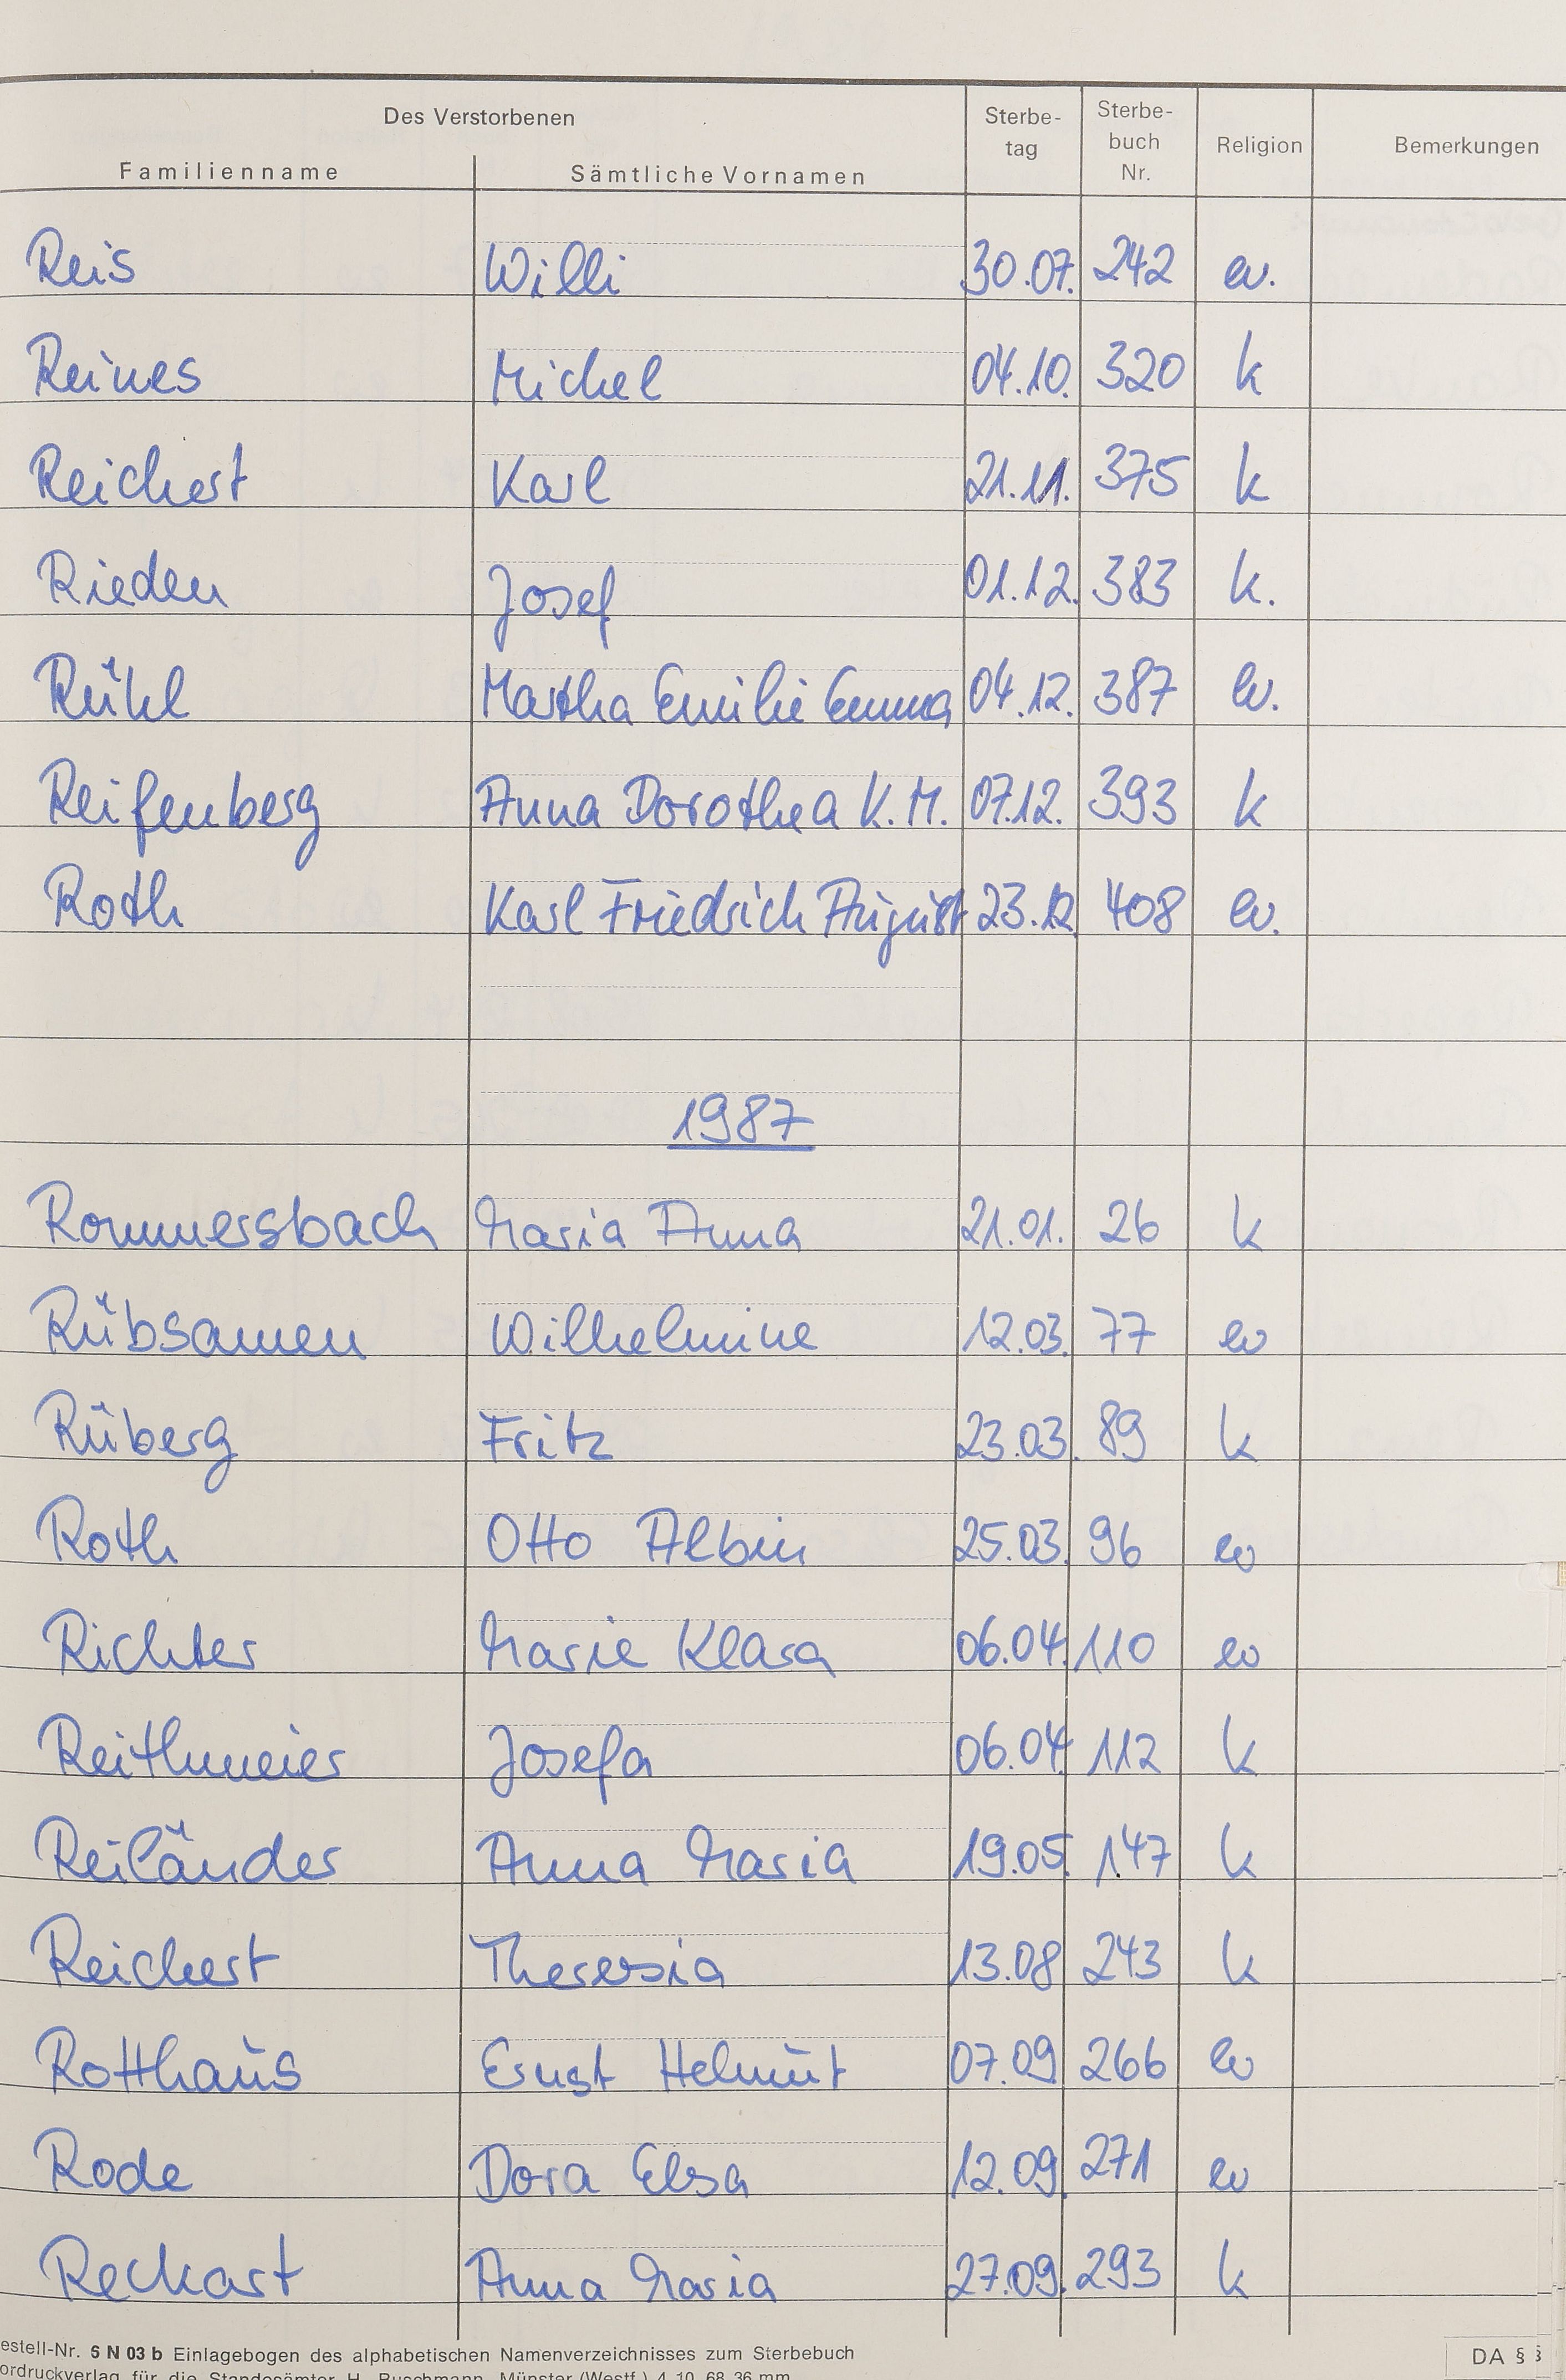 Des Verstorbenen
Familienname Sämtliche Vornamen Sterbe- tag Sterbe- buch Nr. Religion Bemerkungen
Reis Willi 30.07. 242 ev.
Reines Michel 04.10. 320 k
Reichert Karl 21.11. 375 k
Rieden Josef 01.12. 383 k.
Rühl Martha Emilie Emma 04.12. 387 ev.
Reifenberg Anna Dorothea K.M. 07.12. 393 k
Roth Karl Friedrich August 23.12. 408 ev.
1987
Rommersbach Maria Anna 21.01. 26 k
Rübsamen Wilhelmine 12.03. 77 ev
Rüberg Fritz 23.03. 89 k
Roth Otto Albin 25.03. 96 ev
Richter Marie Klara 06.04. 110 ev
Reithmeier Josefa 06.04 112 k
Reiländer Anna Maria 19.05. 147 k
Reichert Theresia 13.08 243 k
Rotthaus Ernst Helmut 07.09 266 ev
Rode Dora Elsa 12.09. 271 ev
Reckart Anna Maria 27.09. 293 k
estell-Nr. 5 N 03 b Einlagebogen des alphabetischen Namenverzeichnisses zum Sterbebuch
ordruckverlag für die Standesämter H. Buschmann, Münster (Westf.) 4 10 68 36 mm
DA §